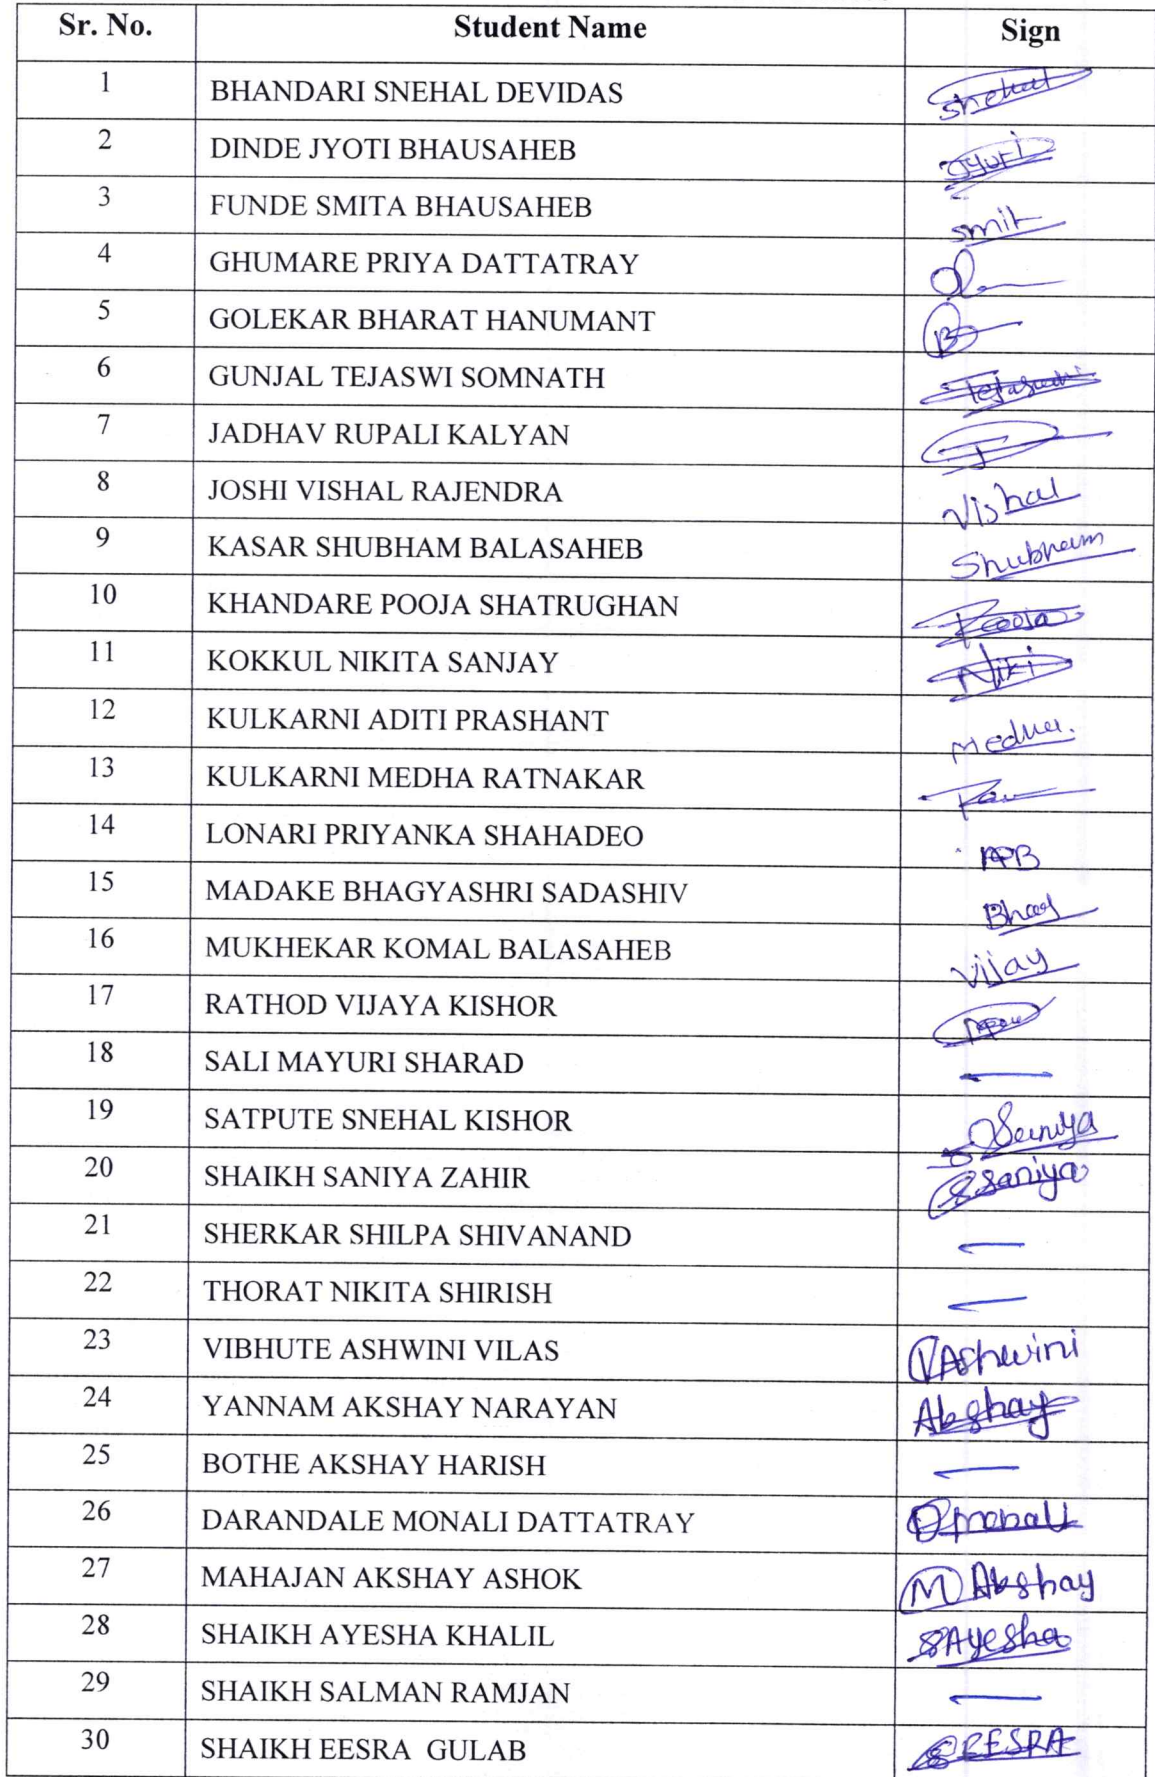 Sr. No. Student Name Sign
1 BHANDARI SNEHAL DEVIDAS Snehal
2 DINDE JYOTI BHAUSAHEB
3 FUNDE SMITA BHAUSAHEB smit
4 GHUMARE PRIYA DATTATRAY
5 GOLEKAR BHARAT HANUMANT B
6 GUNJAL TEJASWI SOMNATH Tejaswini
7 JADHAV RUPALI KALYAN
8 JOSHI VISHAL RAJENDRA Vishal
9 KASAR SHUBHAM BALASAHEB Shubham
10 KHANDARE POOJA SHATRUGHAN Pooja
11 KOKKUL NIKITA SANJAY Niki
12 KULKARNI ADITI PRASHANT Medha.
13 KULKARNI MEDHA RATNAKAR
14 LONARI PRIYANKA SHAHADEO
15 MADAKE BHAGYASHRI SADASHIV Bhag
16 MUKHEKAR KOMAL BALASAHEB Vijay
17 RATHOD VIJAYA KISHOR
18 SALI MAYURI SHARAD
19 SATPUTE SNEHAL KISHOR
20 SHAIKH SANIYA ZAHIR Ssaniya
21 SHERKAR SHILPA SHIVANAND
22 THORAT NIKITA SHIRISH
23 VIBHUTE ASHWINI VILAS VAshwini
24 YANNAM AKSHAY NARAYAN Akshay
25 BOTHE AKSHAY HARISH
26 DARANDALE MONALI DATTATRAY D monali
27 MAHAJAN AKSHAY ASHOK M Akshay
28 SHAIKH AYESHA KHALIL SAyesha
29 SHAIKH SALMAN RAMJAN
30 SHAIKH EESRA GULAB SEESRA